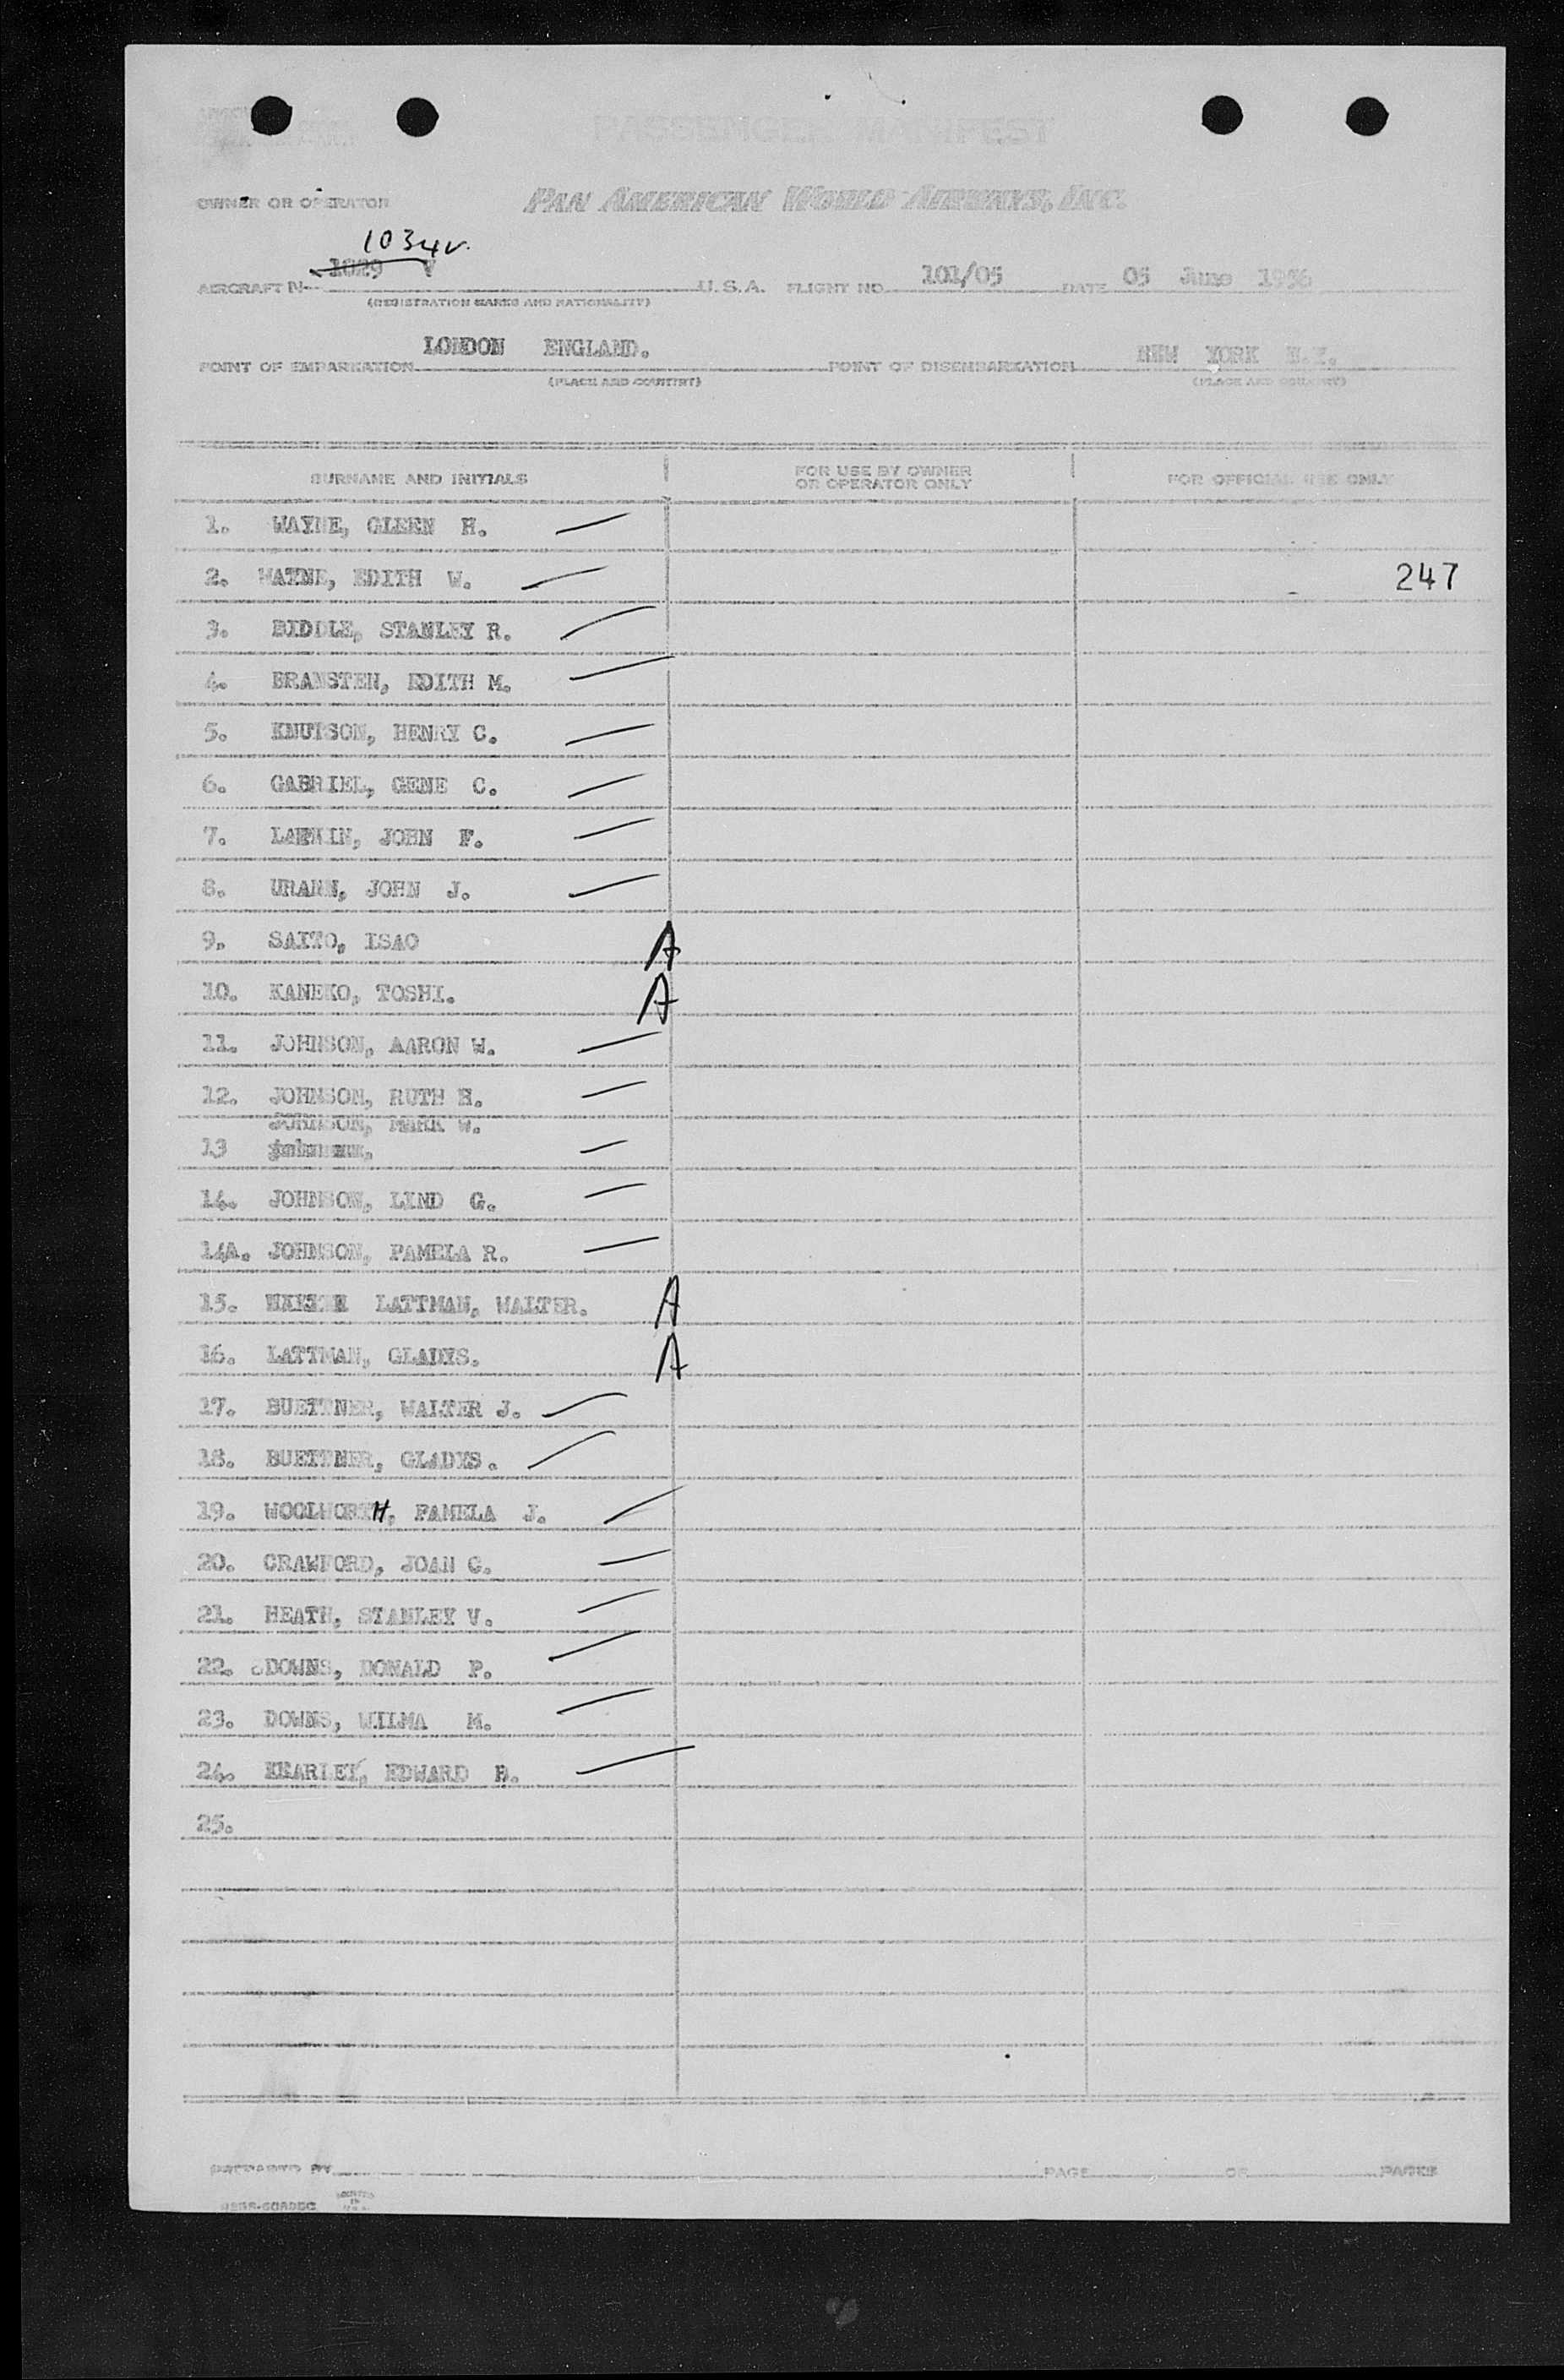 PASSENGER MANIFEST
OWNER OR OPERATOR PAN AMERICAN WORLD AIRWAYS, INC.
1034V
AIRCRAFT N- 1029 V U.S.A. FLIGHT NO. 101/05 DATE 05 June 1956
(REGISTRATION MARKS AND NATIONALITY)
POINT OF EMBARKATION LONDON ENGLAND. POINT OF DISEMBARKATION NEW YORK N.Y.
(PLACE AND COUNTRY) (PLACE AND COUNTRY)
SURNAME AND INITIALS FOR USE BY OWNER OR OPERATOR ONLY FOR OFFICIAL USE ONLY
1. WAYNE, GLENN H.
2. WAYNE, EDITH W. 247
3. BIDDLE, STANLEY R.
4. BRANSTEN, EDITH M.
5. KNUTSON, HENRY C.
6. GABRIEL, GENE C.
7. JOHN F.
8. URANN, JOHN J.
9. SAITO, ISAO A
10. KANEKO, TOSHI. A
11. JOHNSON, AARON W.
12. JOHNSON, RUTH H.
JOHNSON, MARK W.
13
14. JOHNSON, LIND G.
14A. JOHNSON, PAMELA R.
15. LATTMAN, WALTER. A
16. LATTMAN, GLADYS. A
17. BUETTNER, WALTER J.
18. BUETTNER, GLADYS.
19. WOOLWORTH, PAMELA J.
20. CRAWFORD, JOAN C.
21. HEATH, STANLEY V.
22. DOWNS, DONALD P.
23. DOWNS, WILMA M.
24. EDWARD B.
25.
PREPARED BY PAGE OF PAGES
PRINTED IN U.S.A.